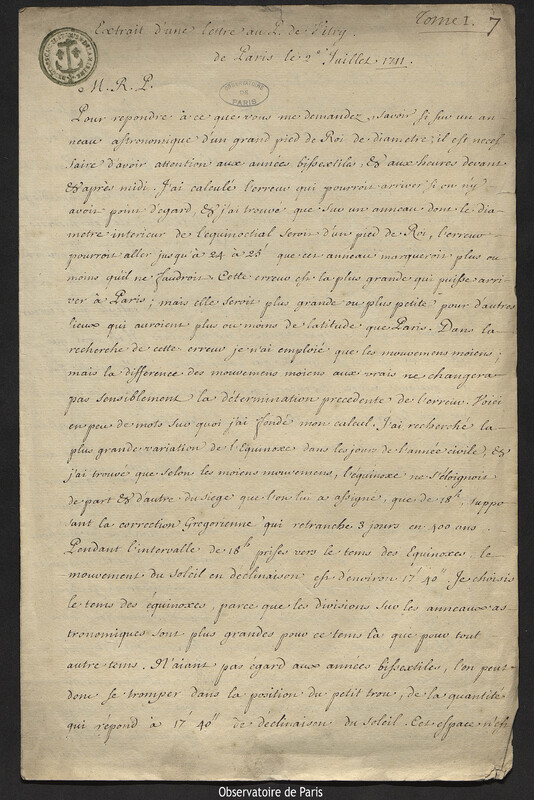 Tome I. 7
Extrait d'une lettre au P. de Vitry.
de Paris le 2e Juillet 1711.
OBSERVATOIRE
DE
PARIS
M. R. P.
Pour repondre à ce que vous me demandez, savoir si sur un an
neau astronomique d'un grand pied de Roi de diametre, il est neces
saire d'avoir attention aux années bissextiles, & aux heures devant
& après midi. J'ai calculé l'erreur qui pourroit arriver si on n'y
avoit point d'egard, & j'ai trouvé que sur un anneau dont le dia
metre interieur de l'equinoctial seroit d'un pied de Roi, l'erreur
pourroit aller jusqu'à 24 à 25' que cet anneau marqueroit plus ou
moins qu'il ne faudroit. Cette erreur est la plus grande qui puisse arri
ver à Paris; mais elle seroit plus grande ou plus petite pour d'autres
lieux qui auroient plus ou moins de latitude que Paris. Dans la
recherche de cette erreur je n'ai emploié que les mouvemens moiens;
mais la difference des mouvemens moiens aux vrais ne changera
pas sensiblement la détermination precedente de l'erreur. Voici
en peu de mots sur quoi j'ai fondé mon calcul. J'ai recherché la
plus grande variation de l'Equinoxe dans les jours de l'année civile, &
j'ai trouvé que selon les moiens mouvemens, l'équinoxe ne s'éloignoit
de part & d'autre du siege que l'on lui a assigné, que de 18h. suppo
sant la correction Gregorienne qui retranche 3 jours en 400 ans.
Pendant l'intervalle de 18h prises vers le tems des Equinoxes, le
mouvement du Soleil en declinaison est d'environ 17' 40". Je choisis
le tems des équinoxes, parce que les divisions sur les anneaux as
tronomiques sont plus grandes pour ce tems là que pour tout
autre tems. N'aiant pas égard aux années bissextiles, l'on peut
donc se tromper dans la position du petit trou, de la quantité
qui répond à 17' 40" de declinaison du Soleil. Cet espace n'est
Observatoire de Paris